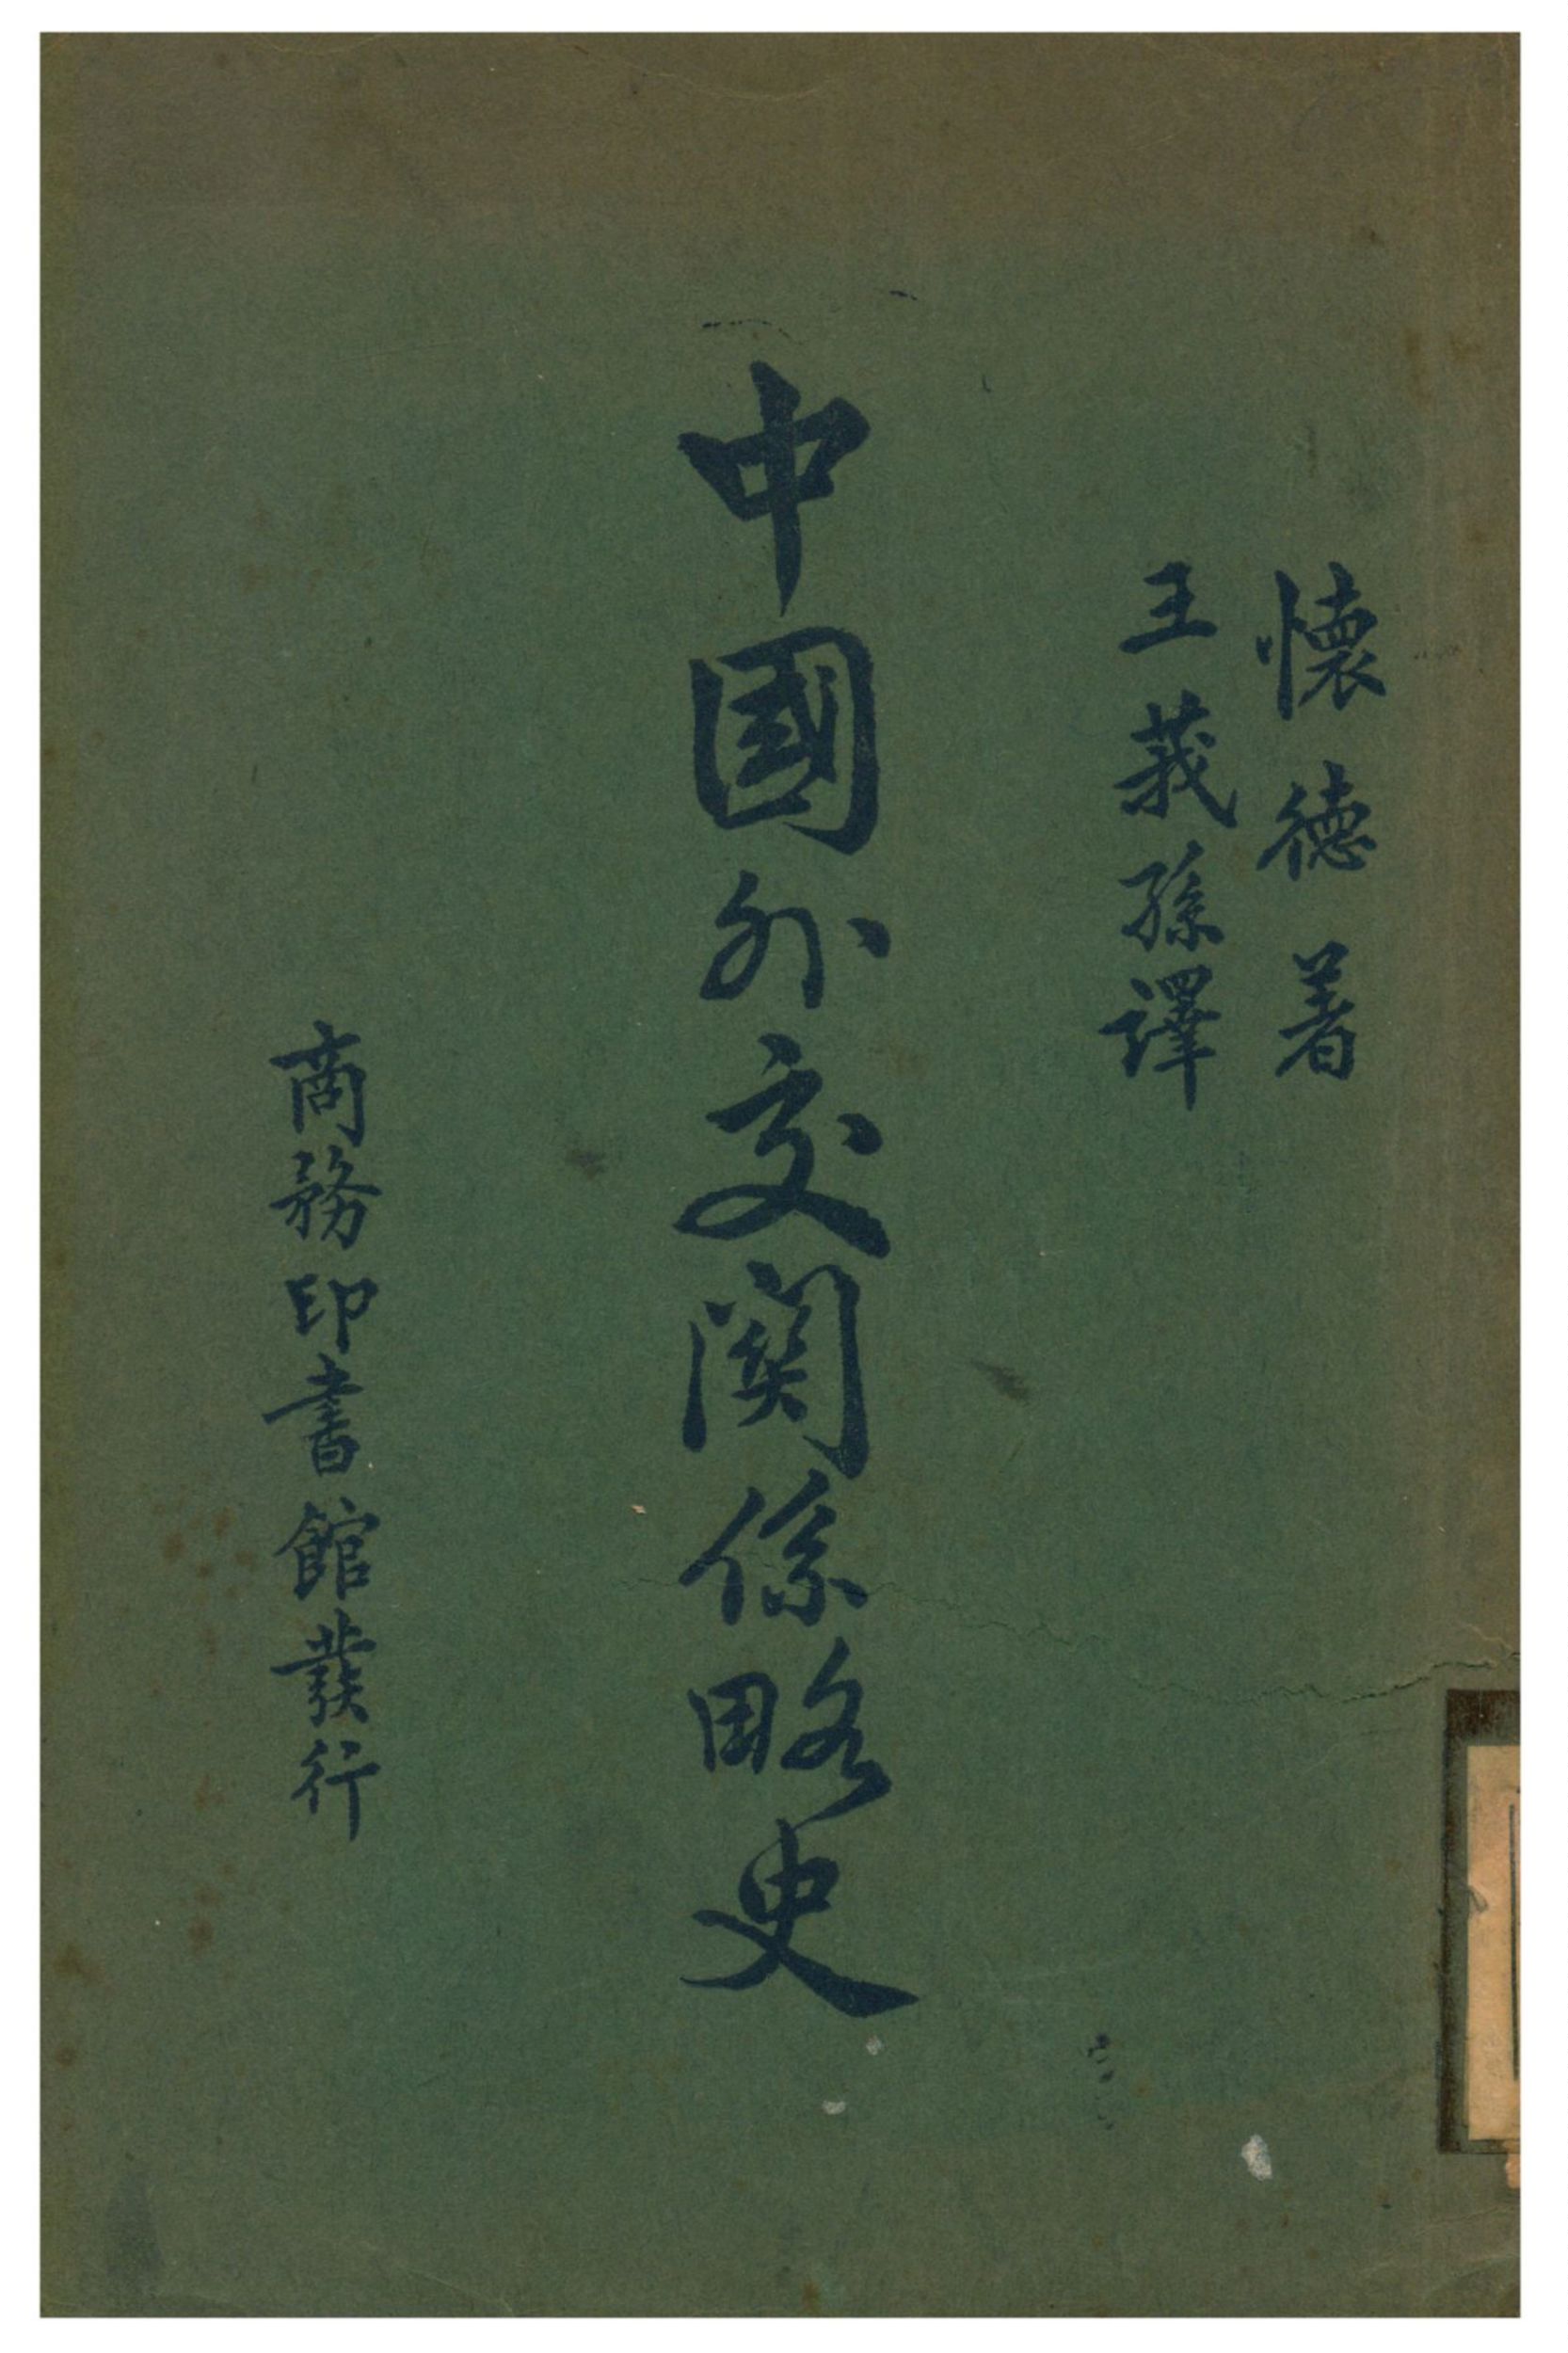 懷德著
王莪孫譯
中國外交關係略史
商務印書館發行